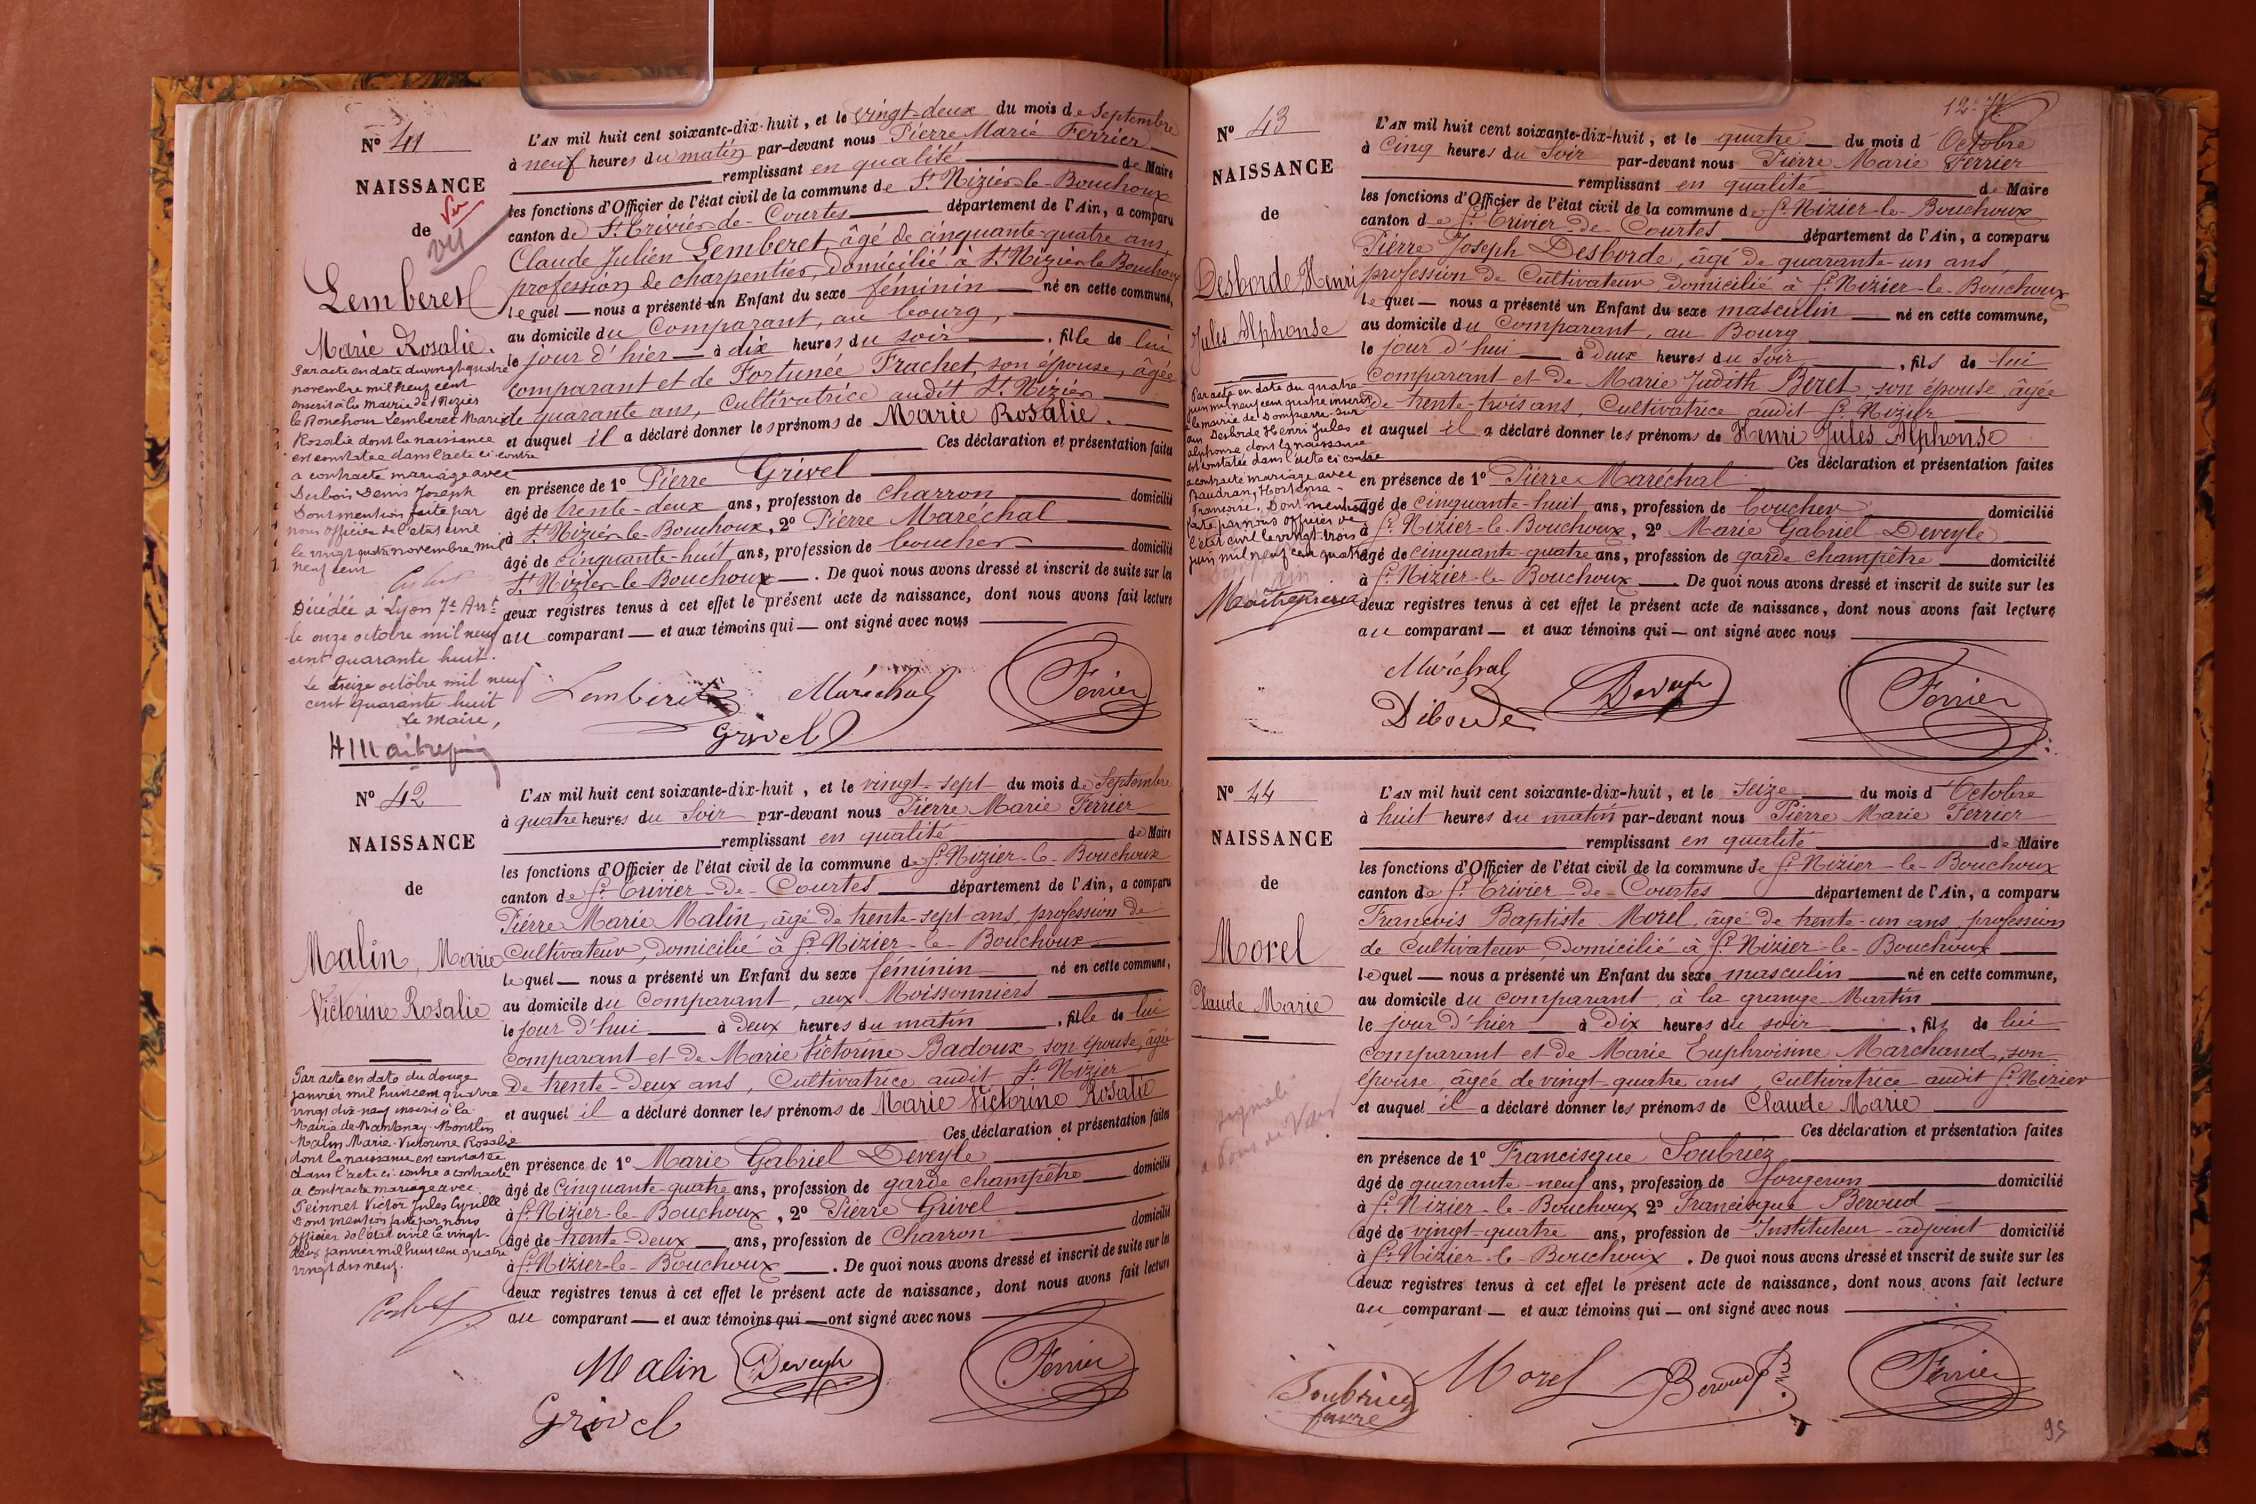 N° 41
NAISSANCE
de
Vu
vu
Lemberet
Marie Rosalie.
Par acte en date du vingt quatre
novembre mil neuf cent
inscrit à la Mairie de St Nizier
le Bouchoux Lemberet Marie
Rosalie dont la naissance
est constatée dans l'acte ci-contre
a contracté mariage avec
Dubois Denis Joseph
Dont mention faite par
nous officier de l'état civil
le vingt quatre novembre mil
neuf cent
Décédée à Lyon 7e Arrt
le onze octobre mil neuf
cent quarante huit.
Le treize octobre mil neuf
cent quarante huit
Le Maire,
L'AN mil huit cent soixante-dix-huit, et le vingt-deux du mois de Septembre
à neuf heures du matin par-devant nous Pierre Marie Ferrier
remplissant en qualité de Maire
les fonctions d'Officier de l'état civil de la commune de St Nizier-le-Bouchoux
canton de St Trivier-de-Courtes département de l'Ain, a comparu
Claude Julien Lemberet, âgé de cinquante-quatre ans,
profession de charpentier, domicilié à St Nizier-le-Bouchoux
lequel nous a présenté un Enfant du sexe féminin né en cette commune,
au domicile du Comparant, au bourg,
le jour d'hier à dix heures du soir, fille de lui
comparant et de Fortunée Frachet, son épouse, âgée
de quarante ans, cultivatrice audit St Nizier
et auquel il a déclaré donner les prénoms de Marie Rosalie.
Ces déclaration et présentation faites
en présence de 1° Pierre Grivel
âgé de trente-deux ans, profession de charron domicilié
à St Nizier-le-Bouchoux, 2° Pierre Maréchal
âgé de cinquante-huit ans, profession de boucher domicilié
à St Nizier-le-Bouchoux. De quoi nous avons dressé et inscrit de suite sur les
deux registres tenus à cet effet le présent acte de naissance, dont nous avons fait lecture
au comparant et aux témoins qui ont signé avec nous
Lemberet Maréchal Ferrier
Grivel
N° 42
NAISSANCE
de
Malin, Marie
Victorine Rosalie
Par acte en date du douze
janvier mil huit cent quatre
vingt dix neuf inscrit à la
Mairie de Mantenay-Montlin
Malin Marie Victorine Rosalie
dont la naissance est constatée
dans l'acte ci-contre a contracté
a contracté mariage avec
Victor Jules Cyrille
Dont mention faite par nous
officier de l'état civil le vingt-
deux janvier mil huit cent quatre
vingt dix neuf.
L'AN mil huit cent soixante-dix-huit, et le vingt-sept du mois de Septembre
à quatre heures du Soir par-devant nous Pierre Marie Ferrier
remplissant en qualité de Maire
les fonctions d'Officier de l'état civil de la commune de St Nizier-le-Bouchoux
canton de St Trivier-de-Courtes département de l'Ain, a comparu
Pierre Marie Malin, âgé de trente-sept ans, profession de
Cultivateur, domicilié à St Nizier-le-Bouchoux
lequel nous a présenté un Enfant du sexe féminin né en cette commune,
au domicile du comparant, aux Moissonniers
le jour d'hui à deux heures du matin, fille de lui
comparant et de Marie Victorine Badoux, son épouse, âgée
de trente-deux ans, Cultivatrice audit St Nizier
et auquel il a déclaré donner les prénoms de Marie Victorine Rosalie
Ces déclaration et présentation faites
en présence de 1° Marie Gabriel Deveyle
âgé de Cinquante-quatre ans, profession de garde champêtre domicilié
à St Nizier-le-Bouchoux, 2° Pierre Grivel
âgé de trente-deux ans, profession de Charron domicilié
à St Nizier-le-Bouchoux. De quoi nous avons dressé et inscrit de suite sur les
deux registres tenus à cet effet le présent acte de naissance, dont nous avons fait lecture
au comparant et aux témoins qui ont signé avec nous
Malin Deveyle Ferrier
Grivel
N° 43
NAISSANCE
de
Desborde, Henri
Jules Alphonse
Par acte en date du quatre
juin mil neuf cent quatre inscrit
à la mairie de Dompierre-sur
Ain Desborde Henri Jules
Alphonse dont la naissance
est constatée dans l'acte ci contre
a contracté mariage avec
Baudran, Hortense
Françoise. Dont mention
faite par nous officier de
l'état civil le vingt-trois
juin mil neuf cent quatre
L'AN mil huit cent soixante-dix-huit, et le quatre du mois d'Octobre
à Cinq heures du Soir par-devant nous Pierre Marie Ferrier
remplissant en qualité de Maire
les fonctions d'Officier de l'état civil de la commune de St Nizier-le-Bouchoux
canton de St Trivier-de-Courtes département de l'Ain, a comparu
Pierre Joseph Desborde, âgé de quarante-un ans,
profession de Cultivateur, domicilié à St Nizier-le-Bouchoux
lequel nous a présenté un Enfant du sexe masculin né en cette commune,
au domicile du Comparant, au Bourg
le jour d'hui à deux heures du Soir, fils de lui
Comparant et de Marie Judith Beret son épouse, âgée
de trente-trois ans, Cultivatrice audit St Nizier
et auquel il a déclaré donner les prénoms de Henri Jules Alphonse
Ces déclaration et présentation faites
en présence de 1° Pierre Maréchal
âgé de cinquante-huit ans, profession de boucher domicilié
à St Nizier-le-Bouchoux, 2° Marie Gabriel Deveyle
âgé de cinquante-quatre ans, profession de garde champêtre domicilié
à St Nizier-le-Bouchoux. De quoi nous avons dressé et inscrit de suite sur les
deux registres tenus à cet effet le présent acte de naissance, dont nous avons fait lecture
au comparant et aux témoins qui ont signé avec nous
Maréchal
Déborde Deveyle Ferrier
N° 44
NAISSANCE
de
Morel
Claude Marie
L'AN mil huit cent soixante-dix-huit, et le Seize du mois d'Octobre
à huit heures du matin par-devant nous Pierre Marie Ferrier
remplissant en qualité de Maire
les fonctions d'Officier de l'état civil de la commune de St Nizier-le-Bouchoux
canton de St Trivier-de-Courtes département de l'Ain, a comparu
Francois Baptiste Morel, âgé de trente-un ans, profession
de Cultivateur, domicilié à St Nizier-le-Bouchoux
lequel nous a présenté un Enfant du sexe masculin né en cette commune,
au domicile du comparant, à la grange Martin
le jour d'hier à dix heures du soir, fils de lui
comparant et de Marie Euphroisine Marchand, son
épouse, âgée de vingt-quatre ans, cultivatrice audit St Nizier
et auquel il a déclaré donner les prénoms de Claude Marie
Ces déclaration et présentation faites
en présence de 1° Francisque Soubriez
âgé de quarante-neuf ans, profession de forgeron domicilié
à St Nizier-le-Bouchoux, 2° Francisque Beroud
âgé de vingt-quatre ans, profession de Instituteur-adjoint domicilié
à St Nizier-le-Bouchoux. De quoi nous avons dressé et inscrit de suite sur les
deux registres tenus à cet effet le présent acte de naissance, dont nous avons fait lecture
au comparant et aux témoins qui ont signé avec nous
Morel Beroud Ferrier
95